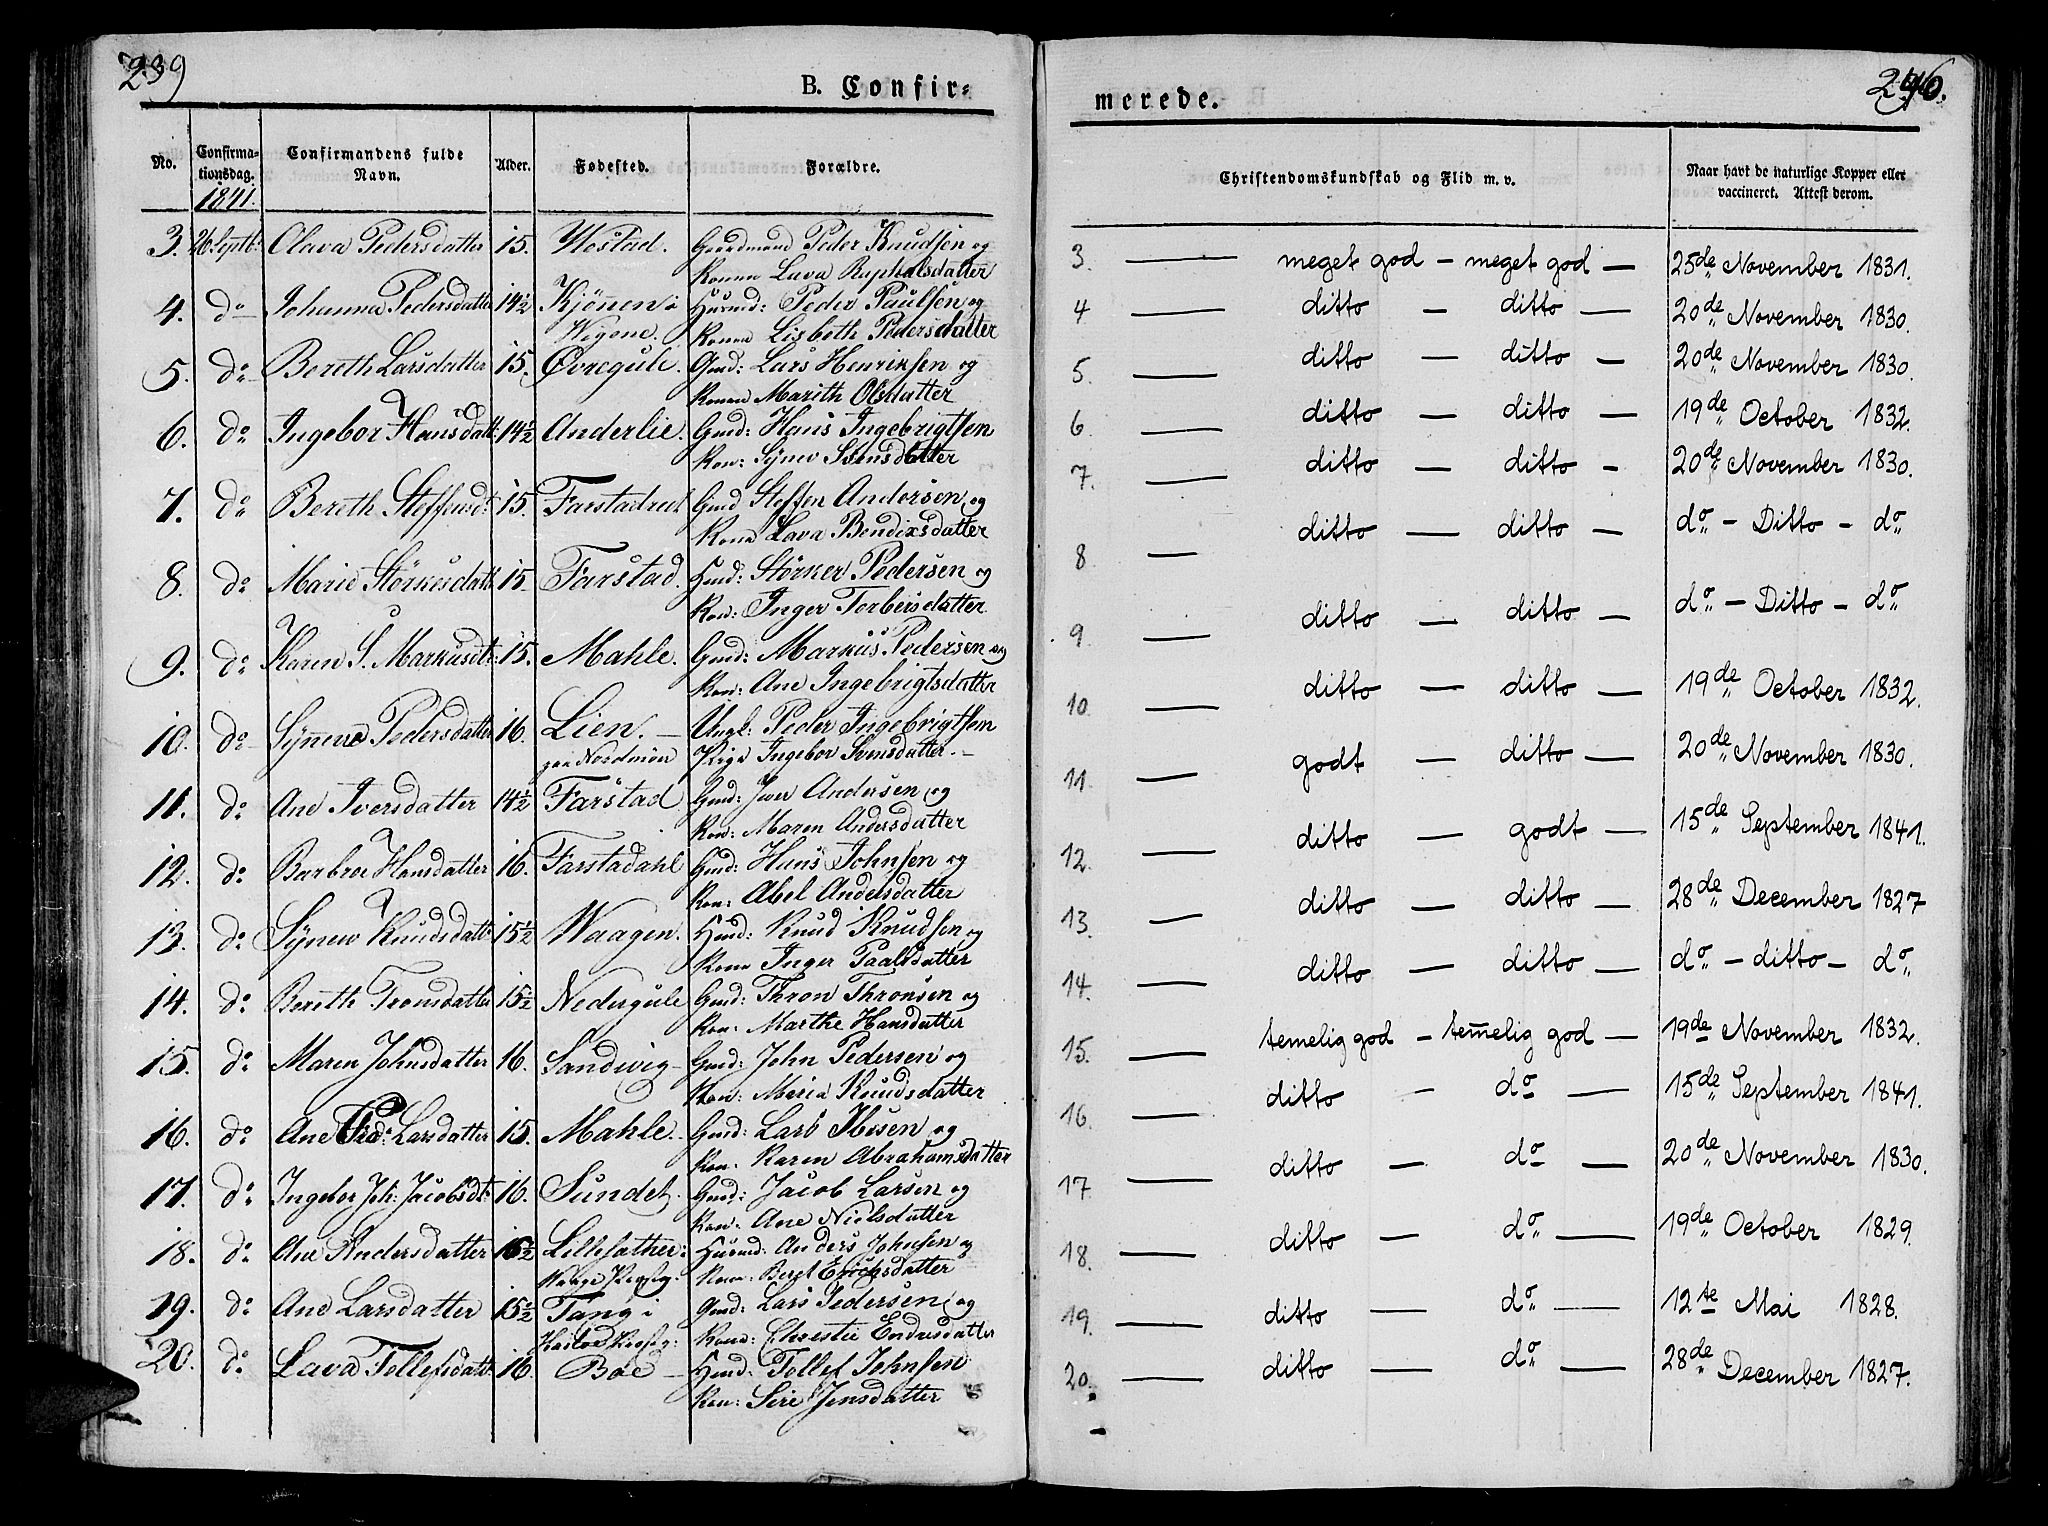 239
B. Confir-
No. Confirma- Confirmandens fulde Alder. Fødested. Forældre.
tionsdag. Navn.
1841.
3. 26 Septb: Olava Pedersdatter 15. Nestad. Gaardmand Peder Knudsen og
Konen Lava Raphelsdatter
4. do Johanna Pedersdatter 14½ Kjönen i Huusmd: Peder Paulsen og
Wigene. Konen Lisbeth Pedersdatter
5. do Bereth Larsdatter 15. Øvregule. Gmd: Lars Henriksen og
Konen Marith Olsdatter
6. do Ingebor Hansdatt 14½ Anderlie. Gmd: Hans Ingebrigtsen
Kon: Synev Svensdatter
7. do Bereth Steffensdt 15. Farstadrud Gmd Steffen Andersen og
Kone Lava Bendixsdatter
8. do Marie Störkesdatt 15 Farstad. Hmd: Störker Pedersen og
Kon: Inger Torbersdatter
9. do Karen S. Markusdt: 15. Mahle. Gmd: Markus Pedersen og
Kon: Ane Ingebrigtsdatter
10. do Syneve Pedersdatter 16. Lien. Ungk: Peder Ingebrigtsen
paa Nordmör Pige Ingebor Svensdatter.
11. do Ane Iversdatter 14½ Farstad Gmd: Iver Andersen og
Kon: Maren Andersdatter
12. do Barbroe Hansdatter 16. Farstadahl Gmd: Hans Johnsen og
Kon: Abel Andersdatter
13. do Synev Knudsdatt 15½ Waagen. Hmd: Knud Knudsen og
Kone Inger Paalsdatter
14. do Bereth Tronsdatter 15½ Nedergule Gmd: Thron Thronsen og
Kon: Marthe Hansdatter
15. do Maren Johnsdatter 16. Sandvig Gmd: John Pedersen og
Kon: Maria Knudsdatter
16. do Ane Larsdatter 15. Mahle. Gmd: Lars Ibsen og
Kon: Karen Abrahamsdatter
17. do Ingebor Joh: Jacobsdt: 16. Sundet. Gmd: Jacob Larsen og
Kon: Ane Nielsdatter
18. do Ane Andersdatter 16½ Huusmd: Anders Johnsen og
Kone: Beret Erichsdatter
19. do Ane Larsdatter 15½ Tang i Gmd: Lars Pedersen og
Kone: Christie Endresdatter
20. do Lava Tollefsdatt 16. Boe Hmd: Tollef Johnsen
Kon: Siri Jensdatter
240.
merede.
Christendomskundskab og Flid m. v. Naar havt de naturlige Kopper eller
vaccineret. Attest derom.
3. meget god - meget god - 25de November 1831.
4 ditto - ditto - 20de November 1830.
5. ditto - ditto - 20de November 1830.
6. ditto - ditto - 19de October 1832.
7. ditto - ditto - 20de November 1830.
8 ditto - ditto - do - Ditto - do
9 ditto - ditto - do - Ditto - do
10. ditto - ditto - 19de October 1832.
11. godt - ditto - 20de November 1830.
12. ditto - godt - 15de September 1841.
13. ditto - ditto - 28de December 1827
14. ditto - ditto - do - ditto - do
15. temelig god - temelig god - 19de November 1832.
16. ditto - do - 15de September 1841.
17. ditto - do - 20de November 1830.
18. ditto - do - 19de October 1829.
19. ditto - do - 12te Mai 1828.
20. ditto - do - 28de December 1827.